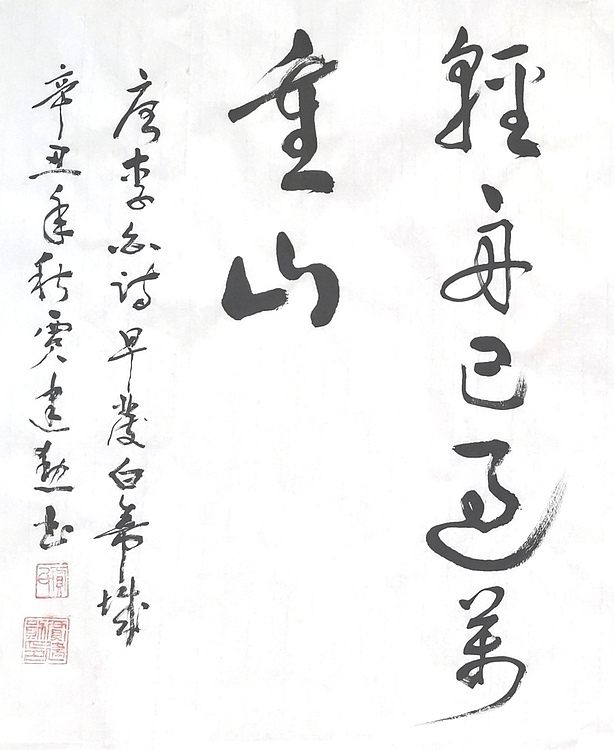 輕舟已過萬
重山
唐李白詩早發白帝城
辛丑年秋賈建勳書